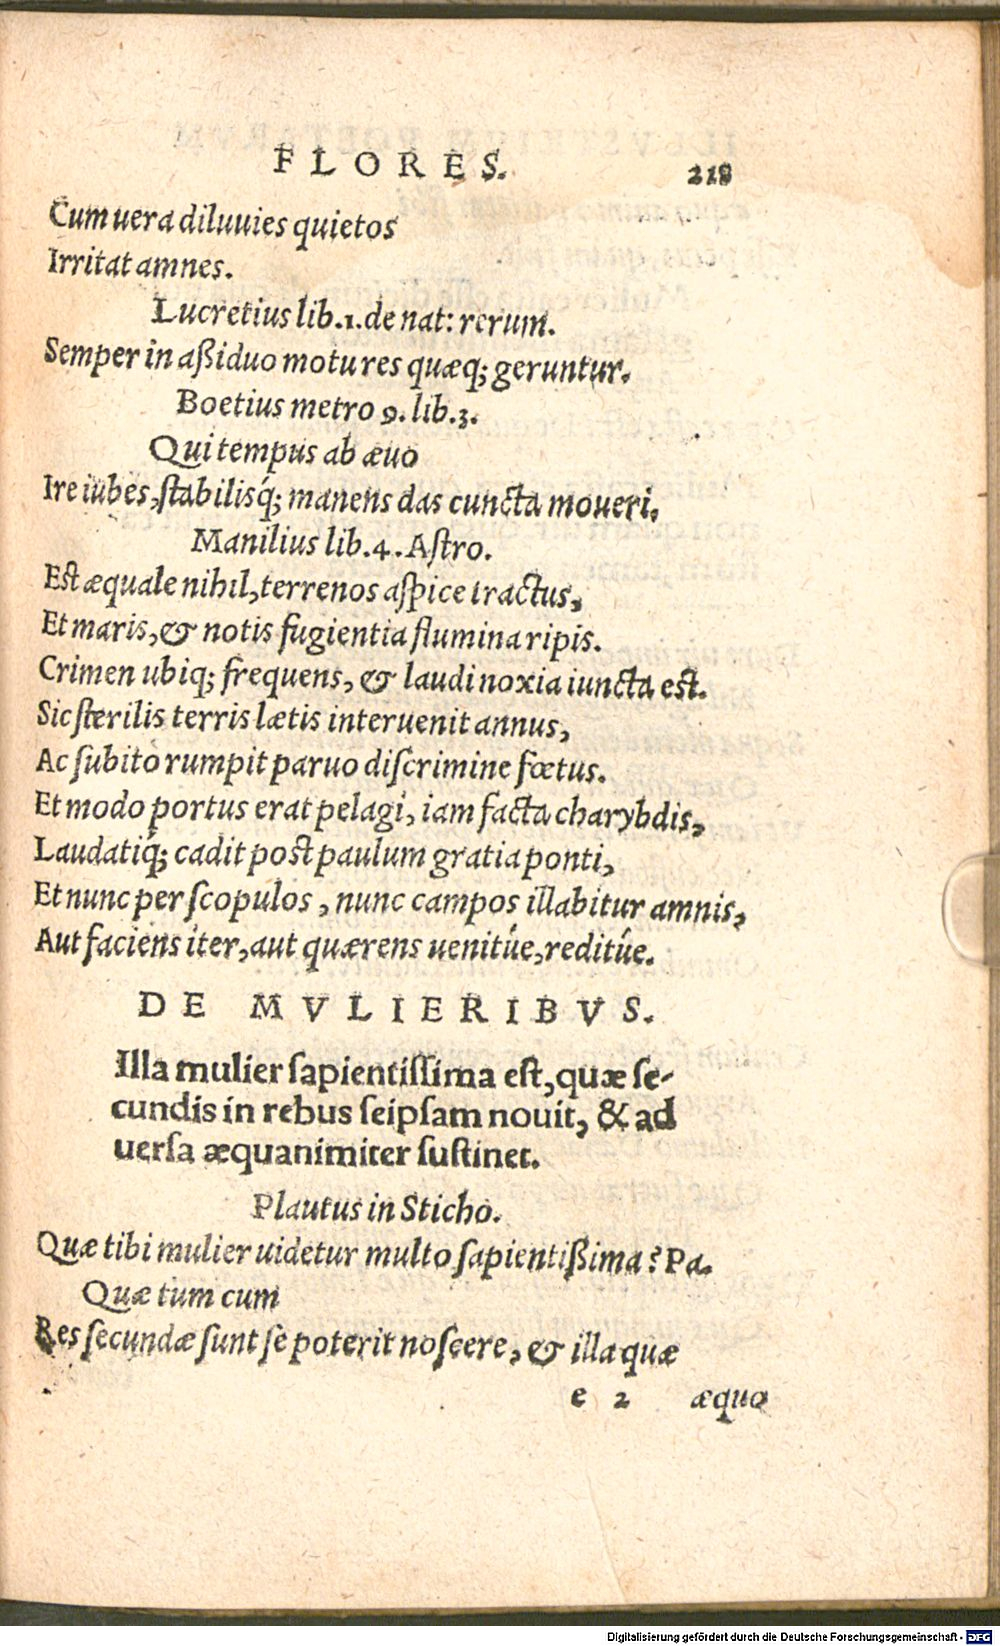 FLORES. 218
Cum uera diluuies quietos
Irritat amnes.
Lucretius lib.1.de nat: rerum.
Semper in aßiduo motu res quæq; geruntur.
Boetius metro 9. lib.3.
Qui tempus ab æuo
Ire iubes, ſtabilisq́; manens das cuncta moueri.
Manilius lib.4.Aſtro.
Est æquale nihil, terrenos aſpice tractus,
Et maris, & notis fugientia flumina ripis.
Crimen ubiq; frequens, & laudi noxia iuncta est.
Sic ſterilis terris lætis interuenit annus,
Ac ſubito rumpit paruo diſcrimine fœtus.
Et modo portus erat pelagi, iam facta charybdis,
Laudatiq́; cadit post paulum gratia ponti,
Et nunc per ſcopulos, nunc campos illabitur amnis,
Aut faciens iter, aut quærens uenitúe, reditúe.
DE MVLIERIBVS.
Illa mulier ſapientiſſima eſt, quæ ſe-
cundis in rebus ſeipſam nouit, & ad
uerſa æquanimiter ſuſtinet.
Plautus in Sticho.
Quæ tibi mulier uidetur multo ſapientißima? Pa.
Quæ tum cum
Res ſecundæ ſunt ſe poterit noſcere, & illa quæ
e 2 æquo
Digitalisierung gefördert durch die Deutsche Forschungsgemeinschaft - DFG